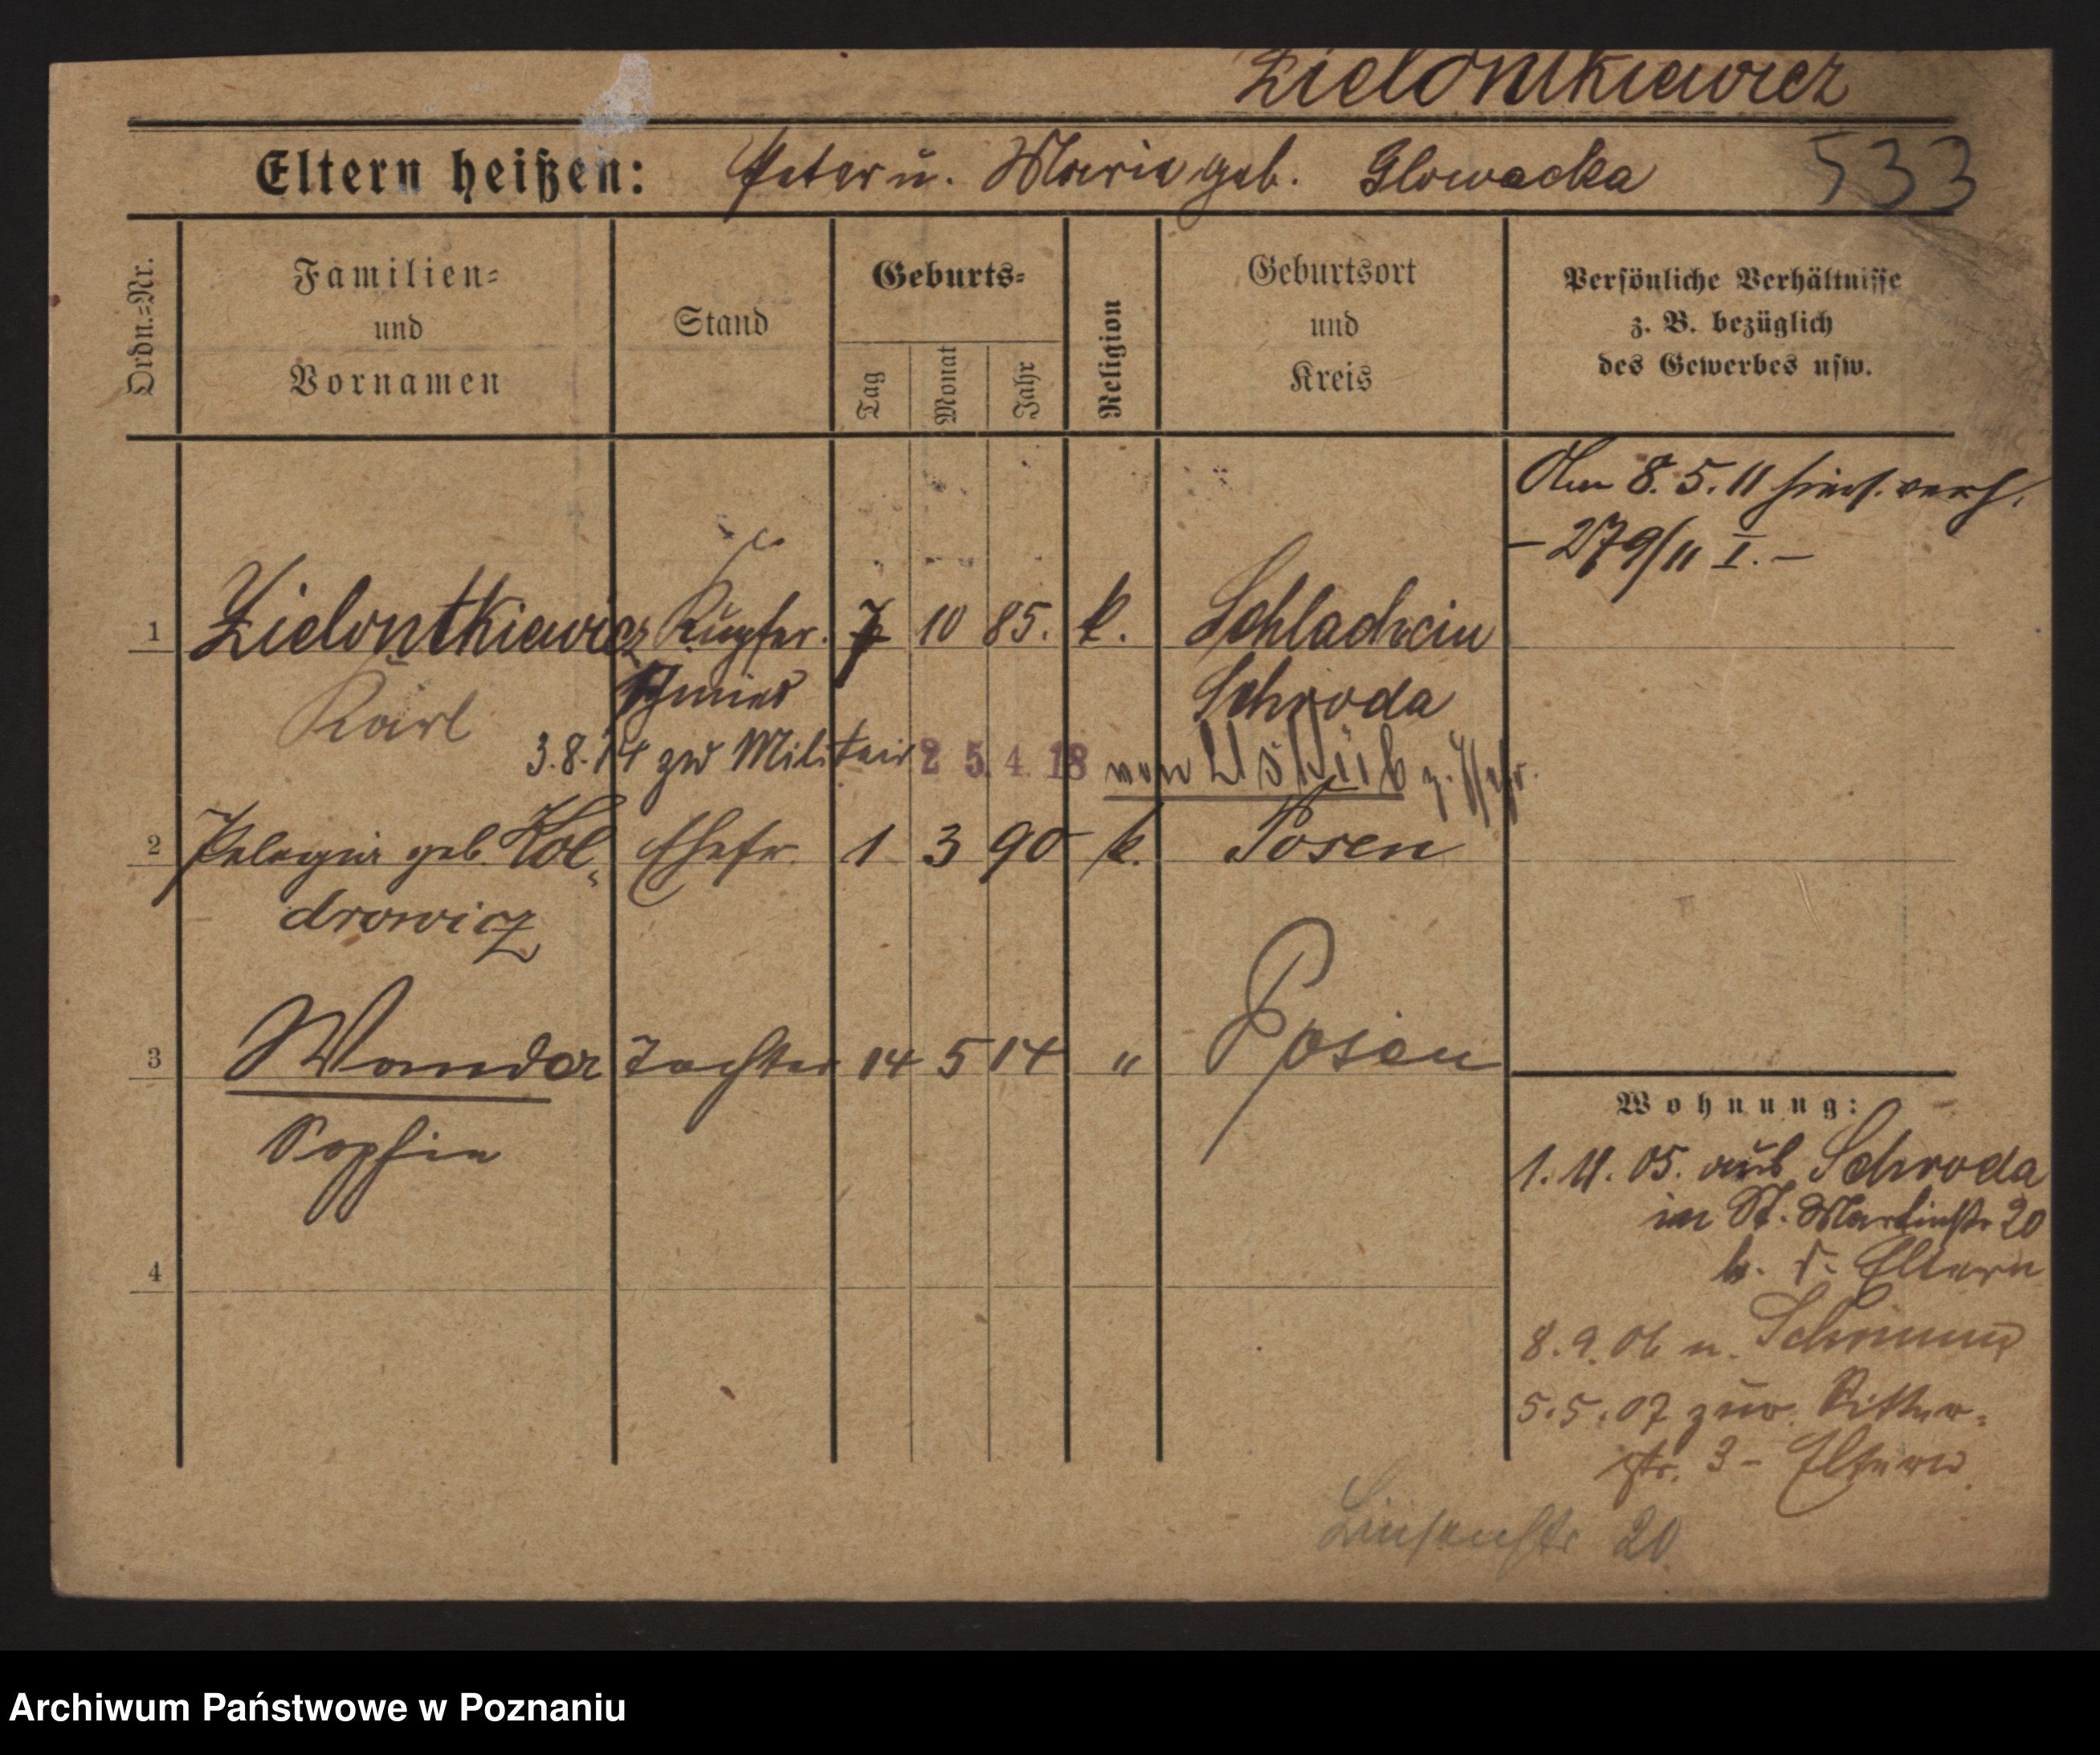 Zielontkiewicz
Eltern heißen: Peter u. Maria geb. Glowacka 533
Ordn.=Nr.
Familien=
und
Vornamen
Stand
Geburts=
Tag
Monat
Jahr
Religion
Geburtsort
und
Kreis
Persönliche Verhältnisse
z. B. bezüglich
des Gewerbes usw.
Am 8. 5. 11 hies. verh.
– 279/11 I. –
1 Zielontkiewicz Kupfer. 7 10 85. k. Schlachcin
Karl schmied Schroda
3.8.14 zum Militair 2 5. 4. 18 von Usküb z.
2 Pelagia geb. Kol= Ehefr. 1 3 90 k. Posen
drowicz
3 Wanda Tochter 14 5 14 " Posen
Sophie
4
Wohnung:
1. 11. 05. aus Schroda
in St. Martinstr 20
b. d. Eltern
8. 9. 06 n.
5. 5. 07 zur. Ritter=
str. 3 – Eltern
20
Archiwum Państwowe w Poznaniu